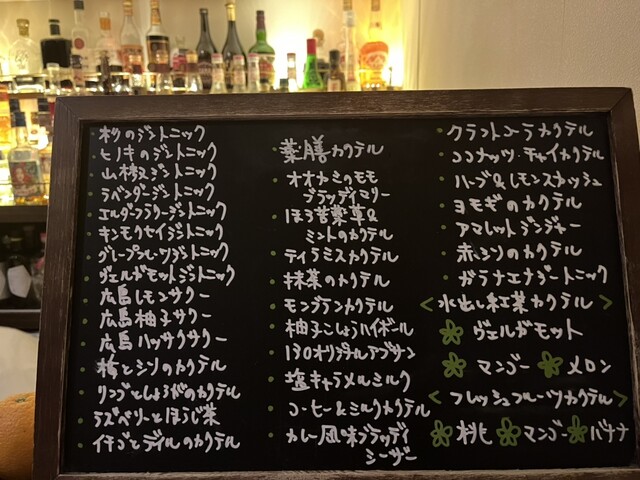 杉のジントニック
ヒノキのジントニック
山椒ジントニック
ラベンダージントニック
エルダーフラワージントニック
キンモクセイジントニック
グレープフルーツジントニック
ヴェルガモットジントニック
広島レモンサワー
広島柚子サワー
広島ハッサクサワー
梅とシソのカクテル
リンゴとしょうがのカクテル
ラズベリーとほうじ茶
イチゴとディルのカクテル
薬膳カクテル
オオカミのモモ
ブラッディマリー
ほろ苦薬草&
ミントのカクテル
ティラミスカクテル
抹茶のカクテル
モンブランカクテル
柚子こしょうハイボール
130オリジナルアブサン
塩キャラメルミルク
コーヒー&ミルクカクテル
カレー風味ブラッディ
シーザー
クラフトコーラカクテル
ココナッツ・チャイカクテル
ハーブ&レモンスカッシュ
ヨモギのカクテル
アマレットジンジャー
赤シソのカクテル
ガラナエナジートニック
<水出し紅茶カクテル>
ヴェルガモット
マンゴー メロン
<フレッシュフルーツカクテル>
桃 マンゴー バナナ